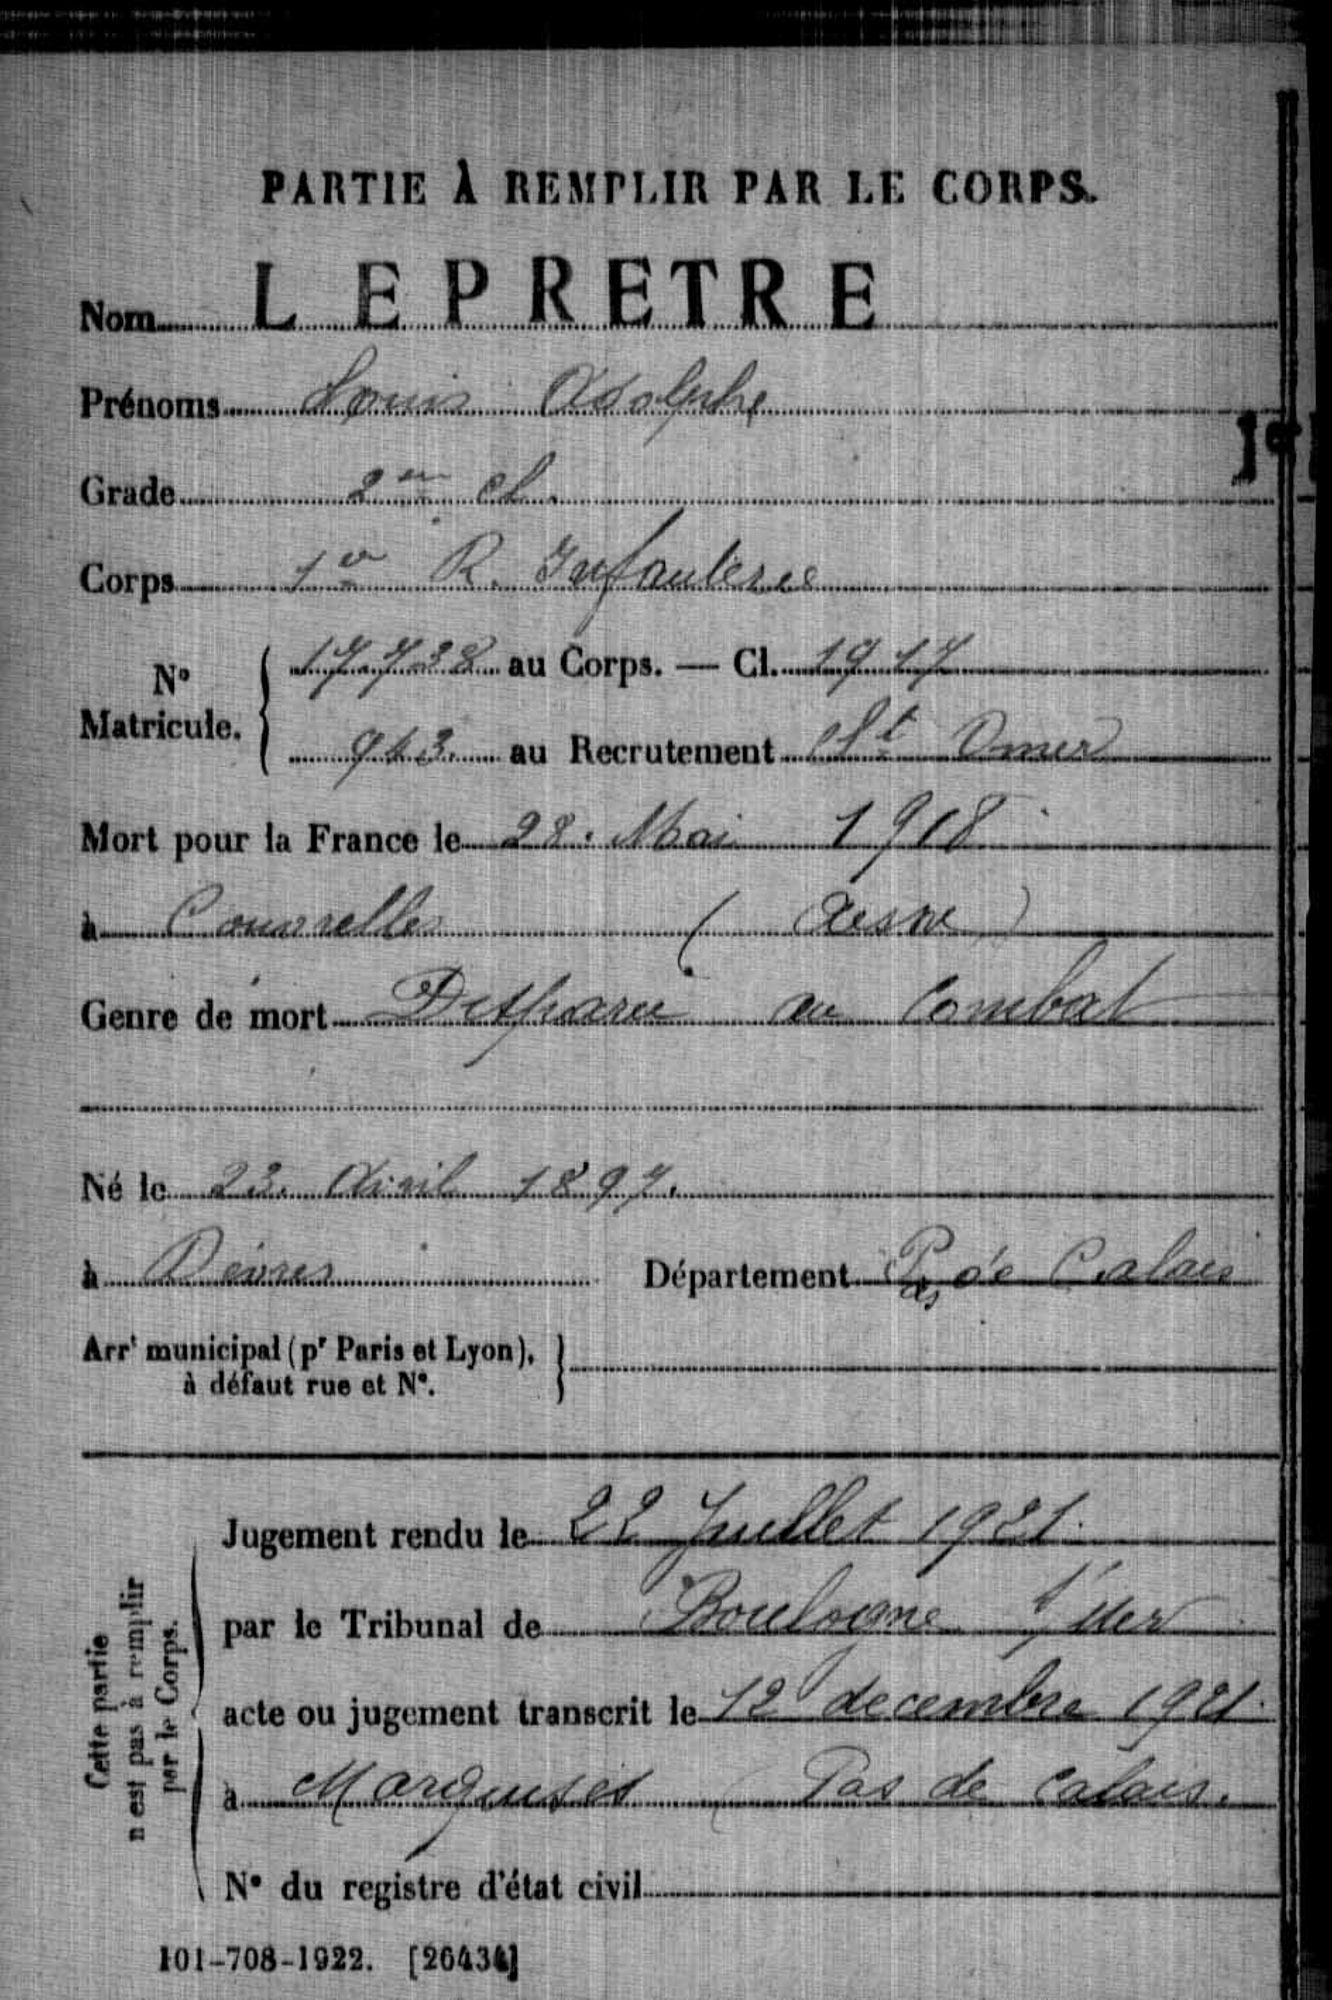 PARTIE À REMPLIR PAR LE CORPS.
Nom LEPRETRE
Prénoms Louis Adolphe
Grade 2em cl.
Corps 1er R. Infanterie
N° Matricule. 17.738 au Corps. — Cl. 1917
943. au Recrutement St Omer
Mort pour la France le 28. Mai 1918
à Couvrelles (Aisne)
Genre de mort Disparu au Combat
Né le 23. Avril 1897.
à Désvres Département Pas de Calais
Arrt municipal (pr Paris et Lyon),
à défaut rue et N°.
Cette partie
n'est pas à remplir
par le Corps.
Jugement rendu le 22 Juillet 1921.
par le Tribunal de Boulogne s/ Mer
acte ou jugement transcrit le 12 decembre 1921.
à Marquises (Pas de Calais.
N° du registre d'état civil
101-708-1922. [26434]